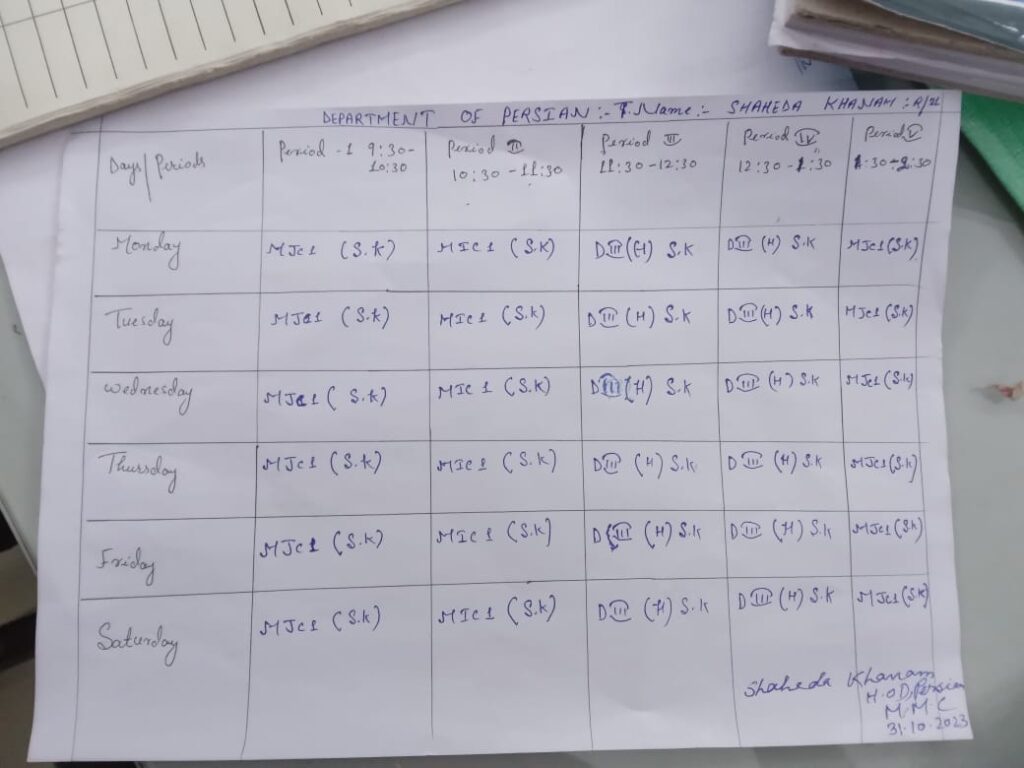 DEPARTMENT OF PERSIAN :- T. Name :- SHAHEDA KHANAM :
Days/Periods Period - 1 9:30-10:30 Period II 10:30 - 11:30 Period III 11:30 - 12:30 Period IV 12:30 - 1:30 Period V 1:30 - 2:30
Monday MJC1 (S.K) MIC1 (S.K) D III (H) S.K D III (H) S.K MJC1 (S.K)
Tuesday MJC1 (S.K) MIC1 (S.K) D III (H) S.K D III (H) S.K MJC1 (S.K)
Wednesday MJC1 (S.K) MIC1 (S.K) D III (H) S.K D III (H) S.K MJC1 (S.K)
Thursday MJC1 (S.K) MIC1 (S.K) D III (H) S.K D III (H) S.K MJC1 (S.K)
Friday MJC1 (S.K) MIC1 (S.K] D III (H) S.K D III (H) S.K MJC1 (S.K)
Saturday MJC1 (S.K) MIC1 (S.K) D III (H) S.K D III (H) S.K MJC1 (S.K)
Shaheda Khanam
H.O.D, Persian
M.M.C
31.10.2023